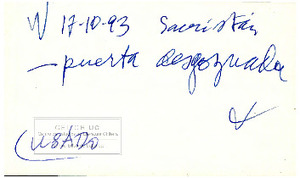 W 17-10-93 Sacristán
- puerta desgoznada
USADO